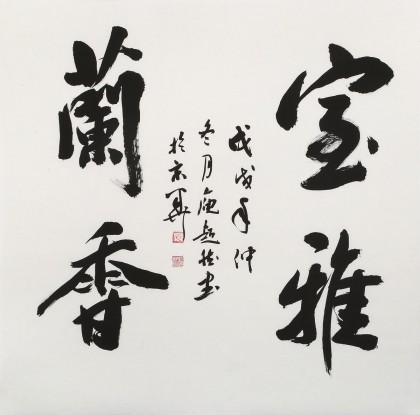 室雅
蘭香
戊戌年仲
冬月超書
於京華